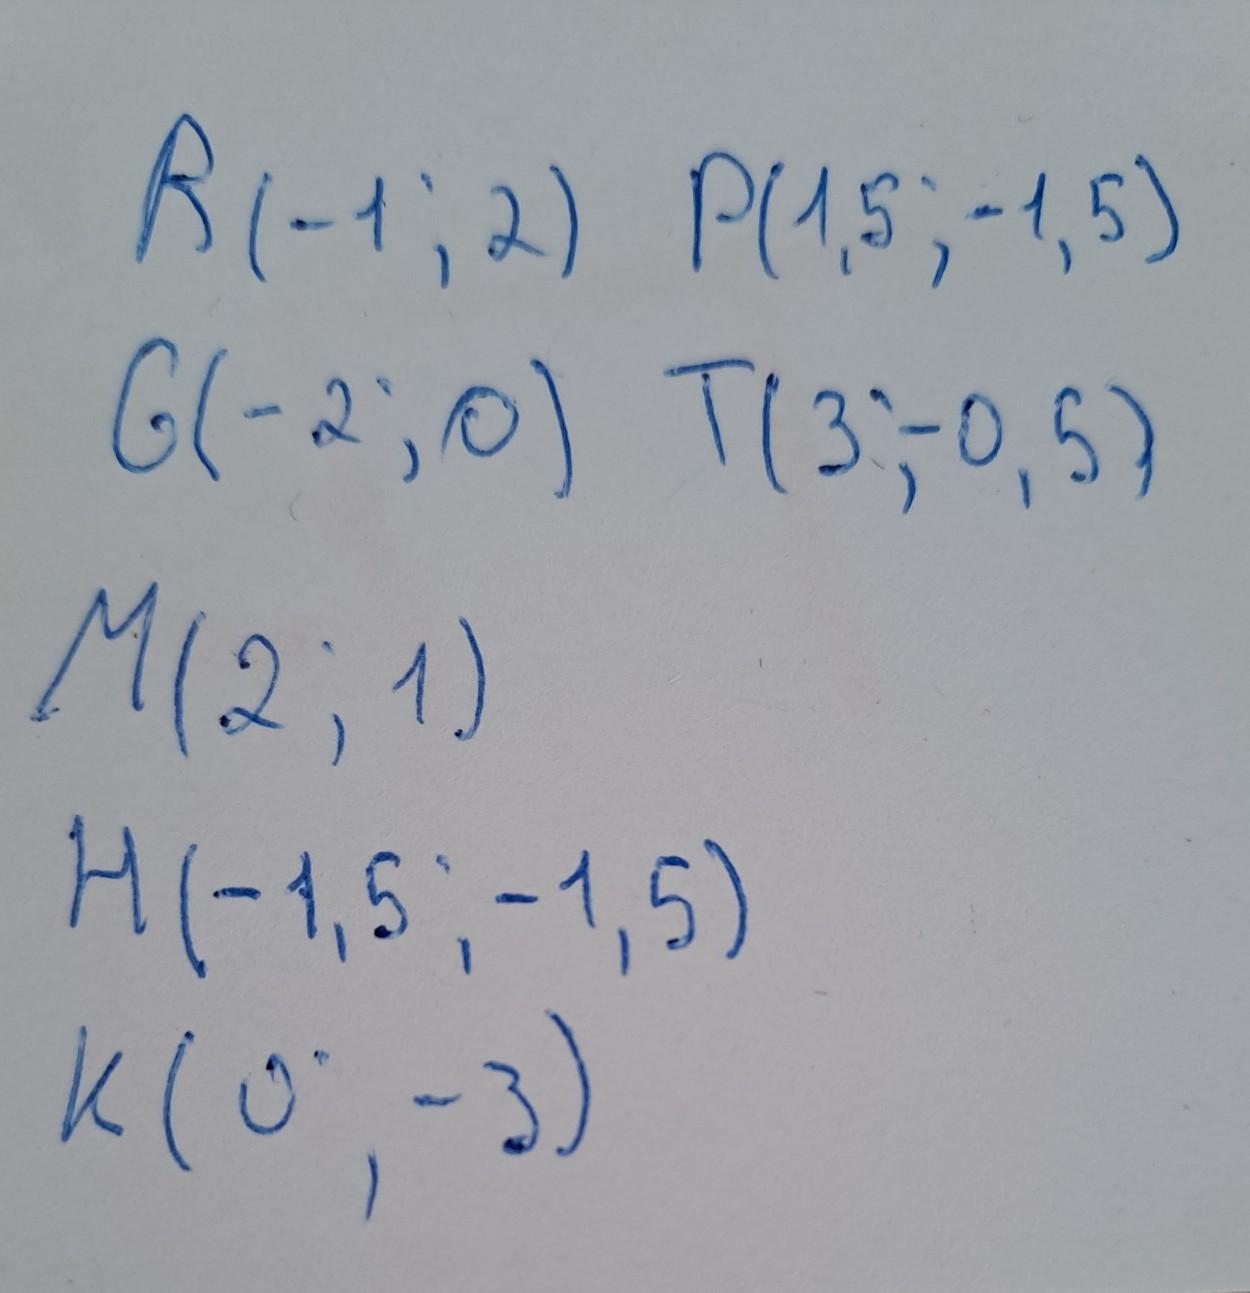 R(-1; 2) P(1,5; -1,5)
G(-2; 0) T(3; -0,5)
M(2; 1)
H(-1,5; -1,5)
K(0; -3)